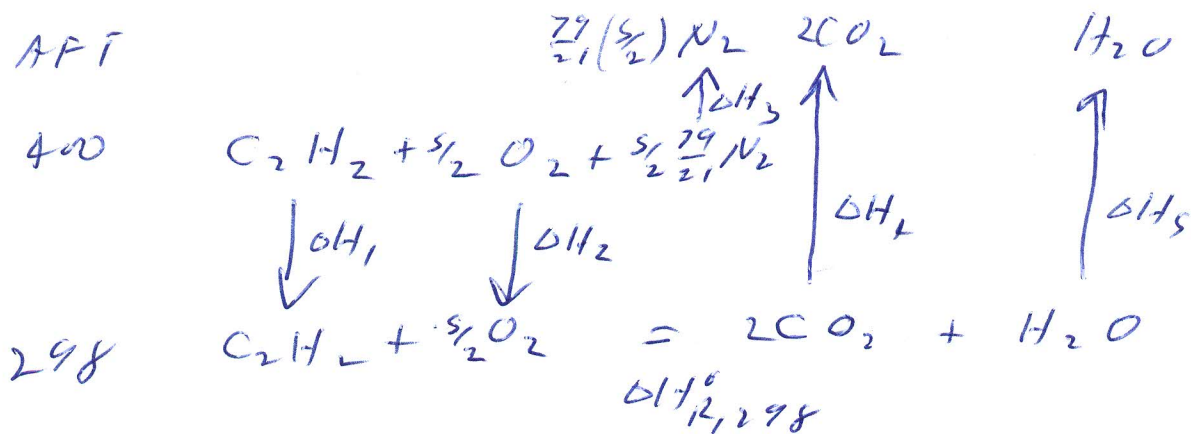 AFT 79/21 (5/2) N₂ 2CO₂ H₂O
ΔH₃
400 C₂H₂ + 5/2 O₂ + 5/2 79/21 N₂
ΔH₁ ΔH₂ ΔH₄ ΔH₅
298 C₂H₂ + 5/2 O₂ = 2CO₂ + H₂O
ΔH°R,298